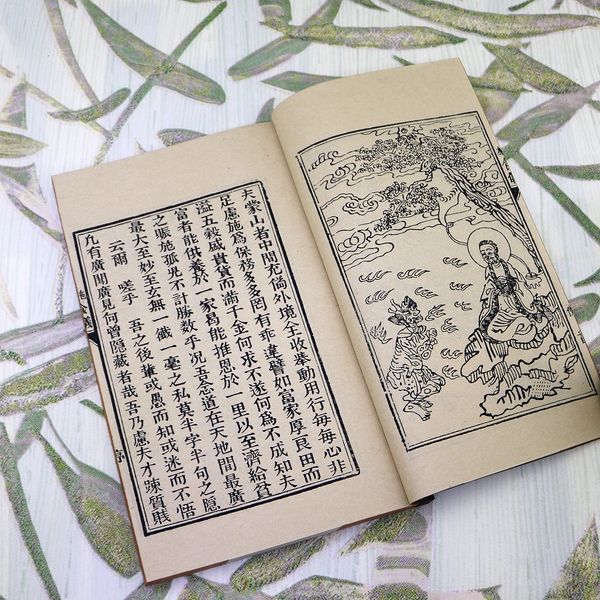 夫蒙山者中間充倘外境全收舉動用行每每心非
足慮施為保務多多罔有乖違譬如富家厚良田而
溢五穀咸貴貨而滿千金何求不遂何為不成知夫
富者能供養於 家曷能推恩於一里以至濟給貧
之賑施孤兒不計勝數乎況五念道在天地間最廣
最大至妙至玄無一織一毫之私莫半字半句之隱
云爾 嗟乎 吾之後輩或愚而知或迷而不悟
凡有廣聞廣見何曾隱藏者哉吾乃慮夫才踈質賤
序